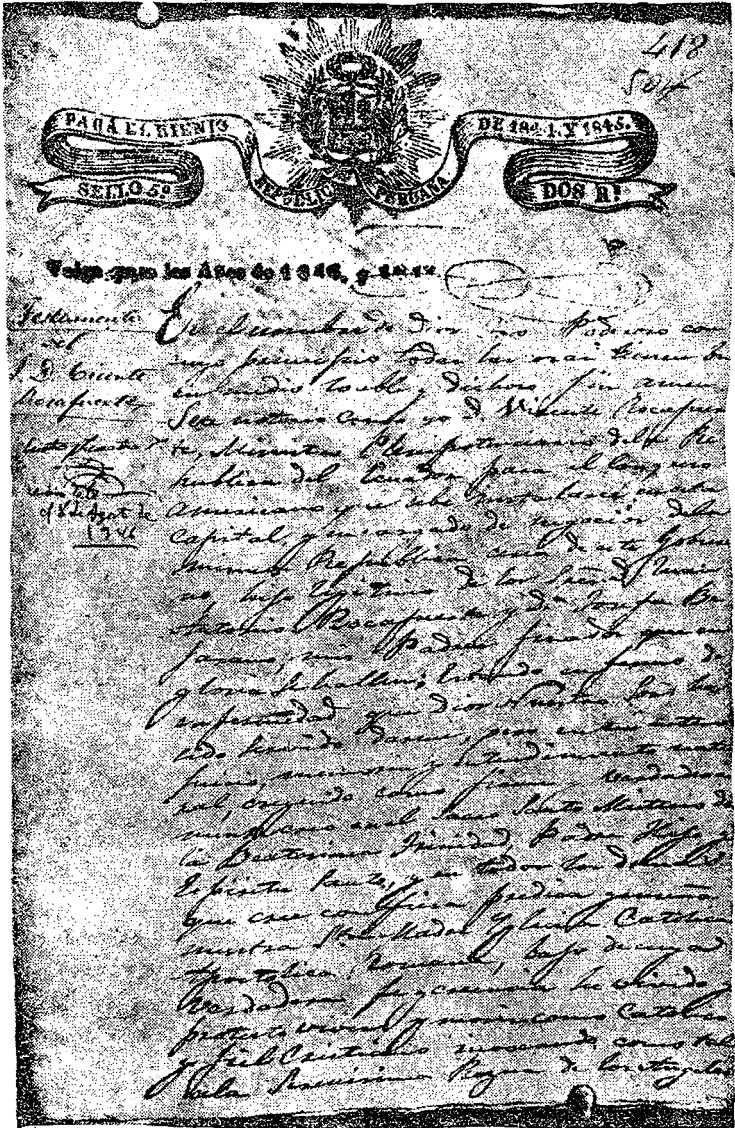 418
504
PARA EL BIENIO
DE 1844. Y 1845.
SELLO 5º
REPUBLICA PERUANA
DOS Rs
Valga para los Años de 1846. y 1847
Testamento
del
S. D. Vicente
Rocafuerte
En el nombre de Dios todo Poderoso con
cuyo principio todas las cosas tienen buen
medio loable y dichoso fin amen
Sea notorio como yo D. Vicente Rocafuer
te, Ministro Plenipotenciario de la Re
publica del Ecuador para el Congreso
americano que debe instalarse en esta
capital, y encargado de negocios de la
misma Republica cerca de este Gobier
no hijo legitimo de los Señores Juan
Antonio Rocafuerte y Dª Josefa Be
jarano, mis Padres finados que en
gloria se hallen; Estando enfermo de
enfermedad que Dios Nuestro Señor ha
sido servido darme, pero en mi entero
juicio, memoria y entendimiento natu
ral, creyendo como firme y verdadera
mente creo en el Santo Misterio de
la Beatisima Trinidad, Padre Hijo y
Espiritu Santo, y en todos los demas
que cree confiesa predica y enseña
nuestra Sta Madre Yglesia Catolica
Apostolica, Romana, bajo de cuya
verdadera fe y creencia he vivido y
protesto vivir y morir como Catolico
y fiel Cristiano
a la Serenisima Reyna de los Angeles